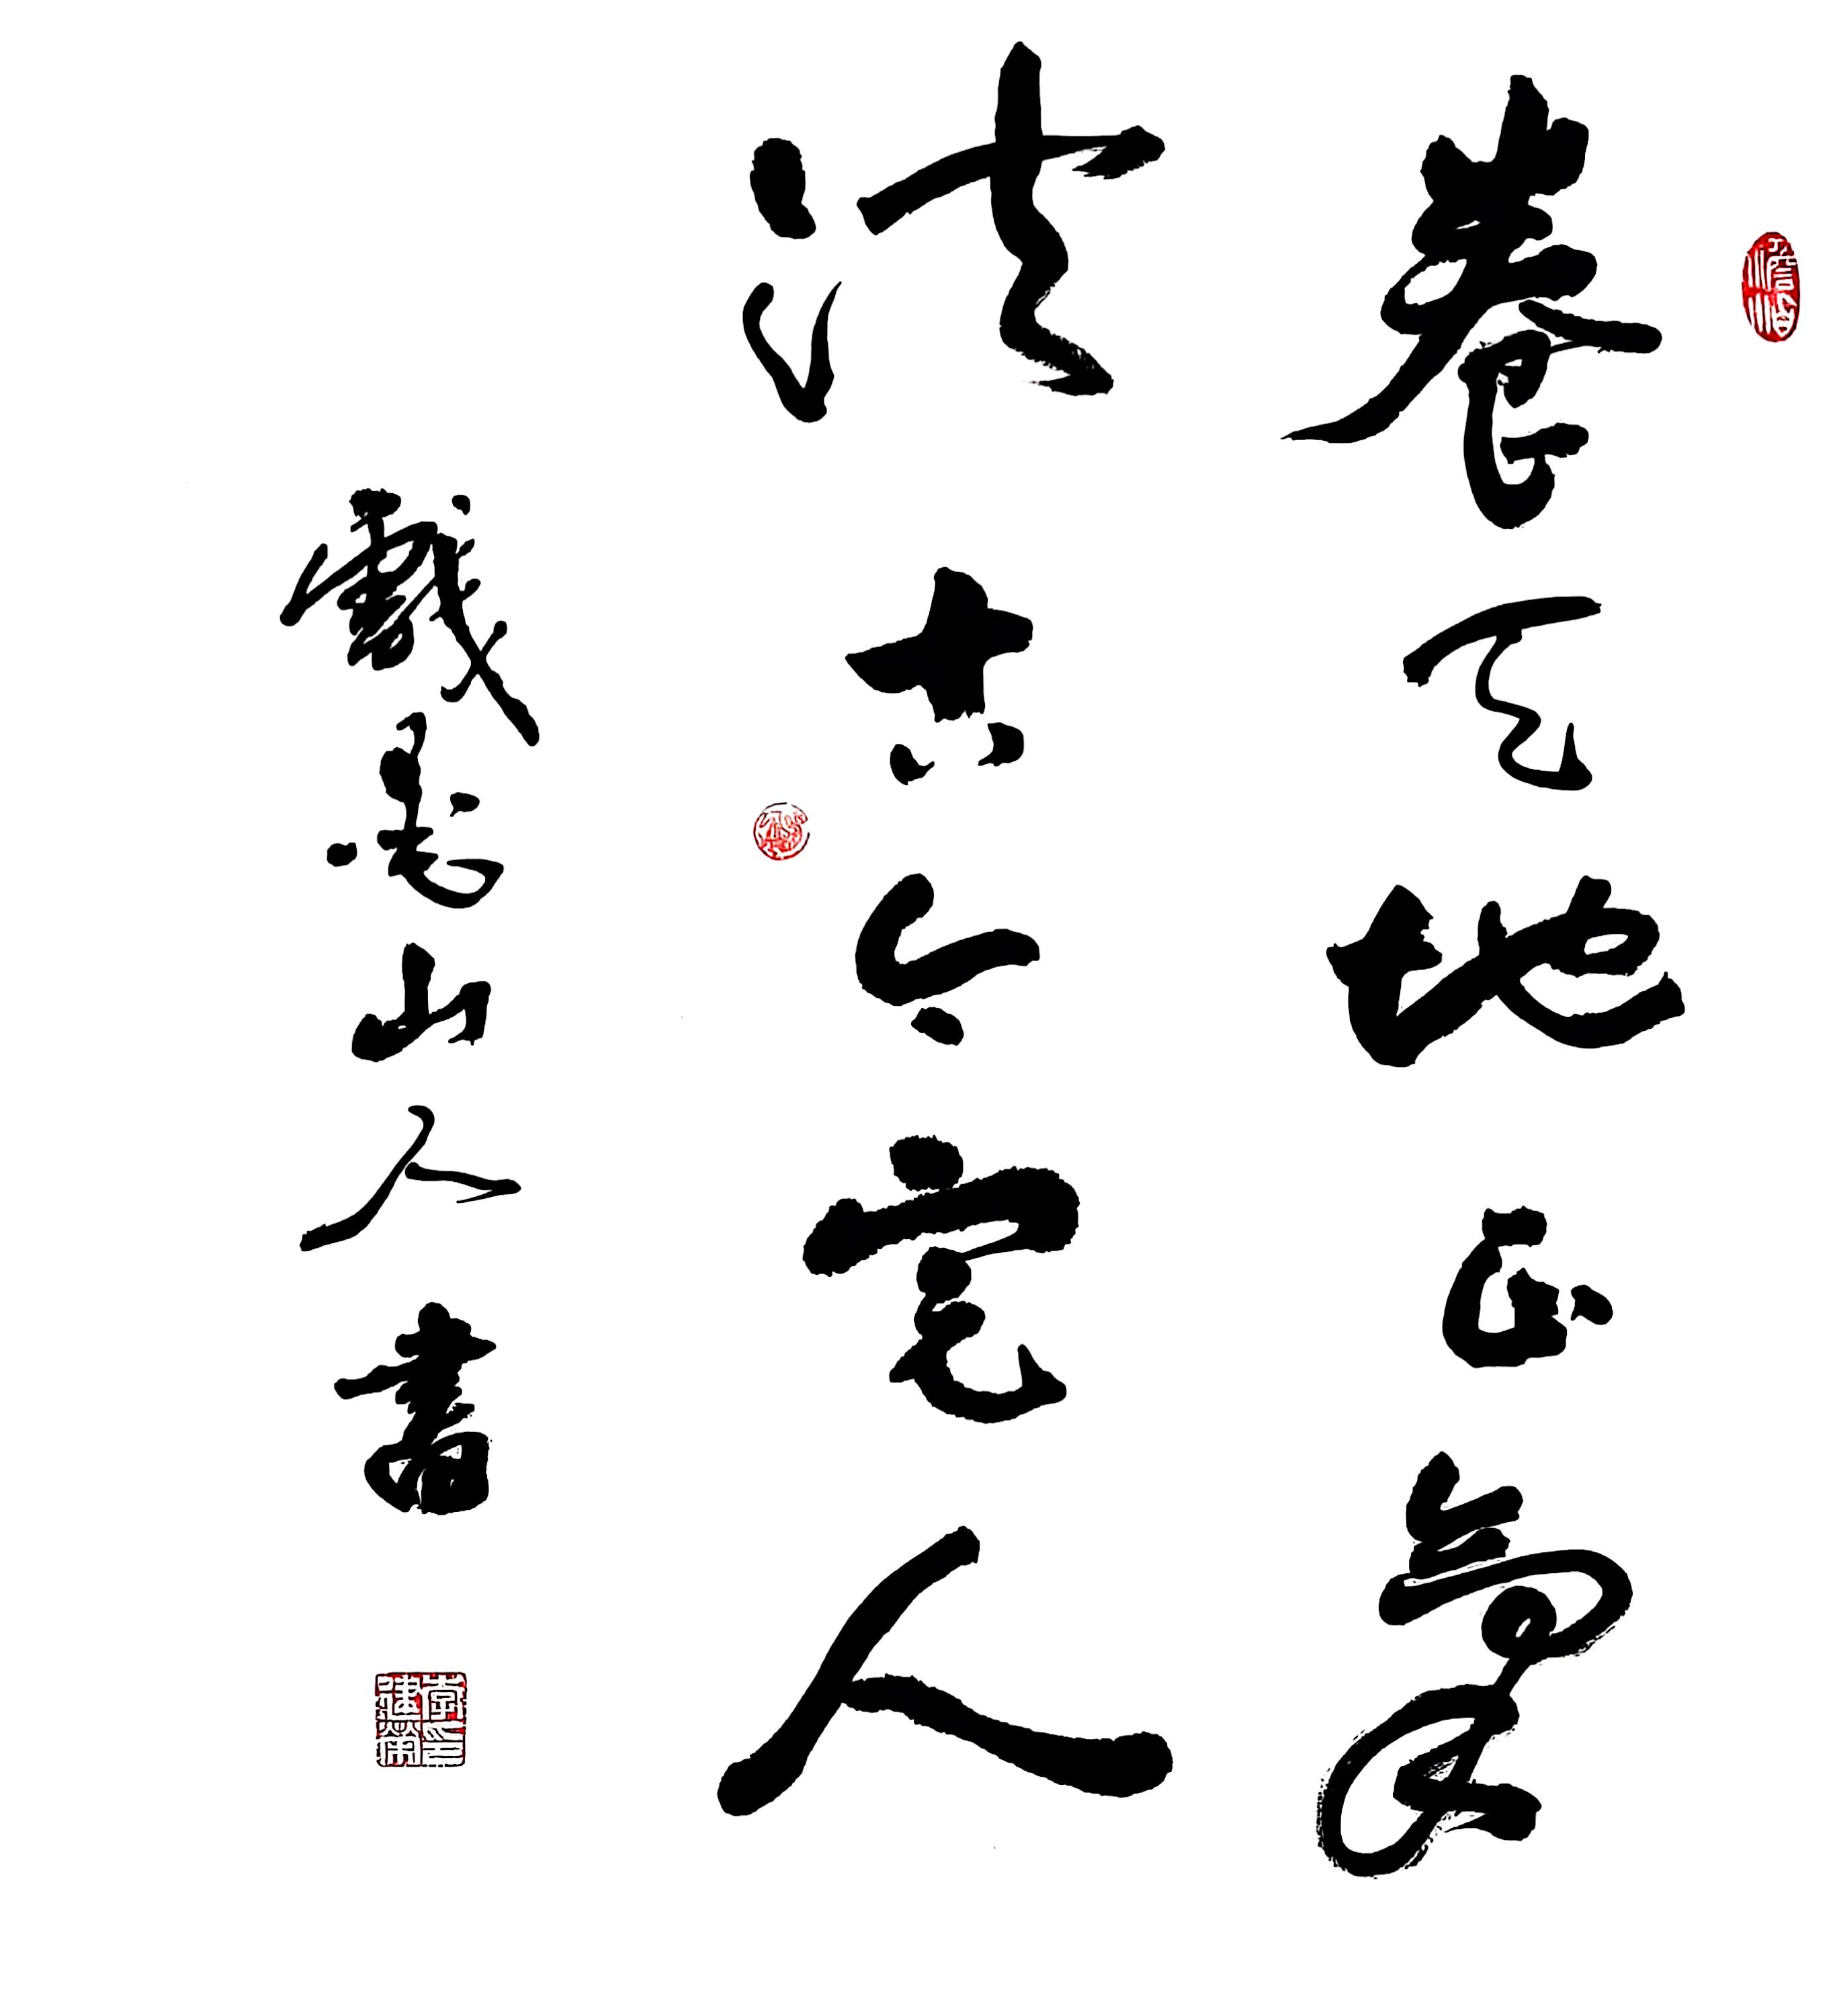 養天地正氣
法古今完人
山人書